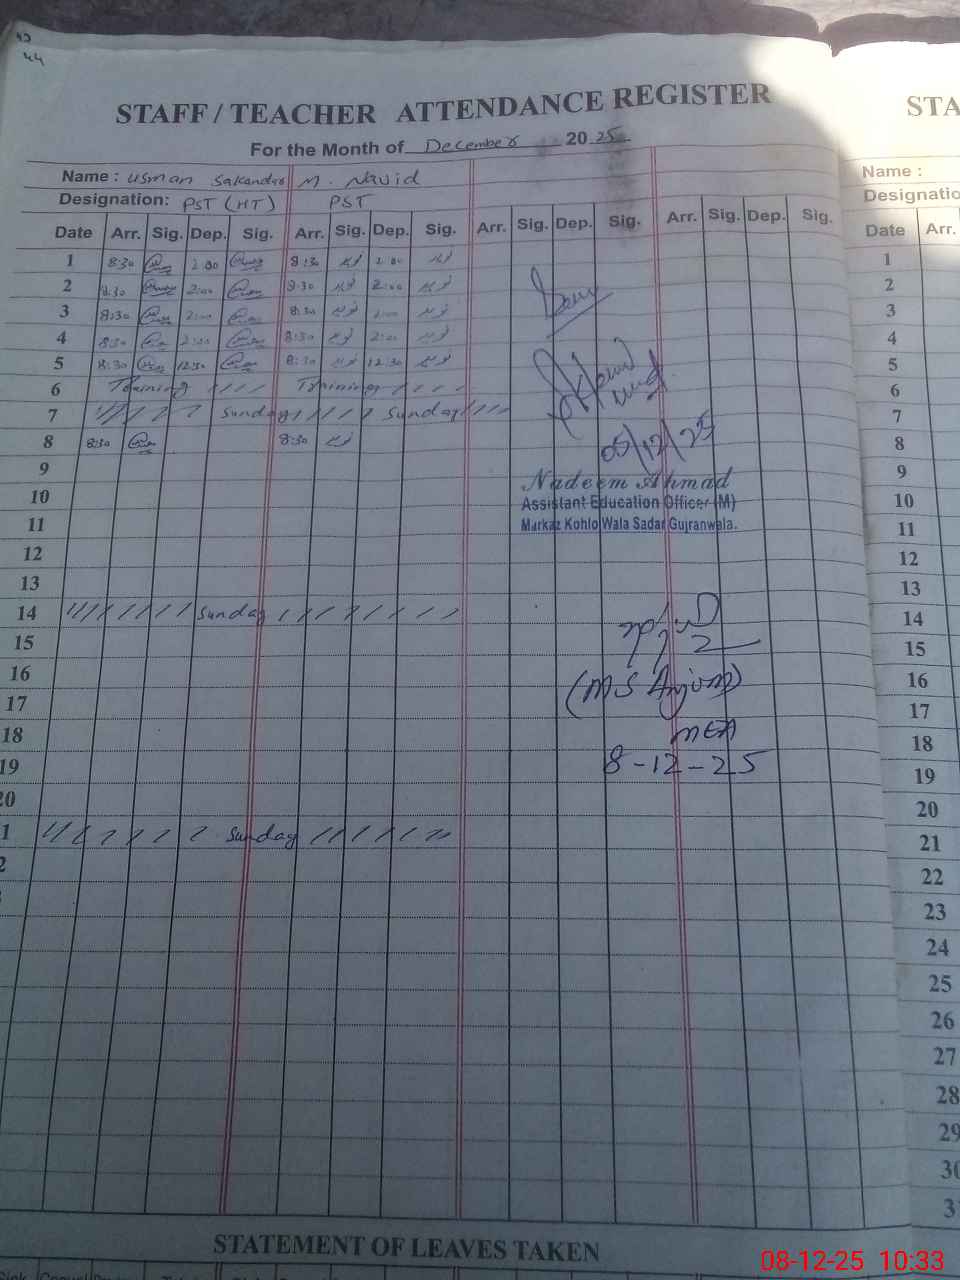 44
STAFF / TEACHER ATTENDANCE REGISTER
For the Month of December 2025
Name : Usman Sakandar M. Navid
Designation: PST (HT) PST
Date Arr. Sig. Dep. Sig. Arr. Sig. Dep. Sig. Arr. Sig. Dep. Sig. Arr. Sig. Dep. Sig.
1 8:30 2:00 8:30 2:00
2 8:30 2:00 8:30 2:00
3 8:30 2:00 8:30 2:00
4 8:30 2:00 8:30 2:00
5 8:30 12:30 8:30 12:30
6 Training Training
7 Sunday Sunday
8 8:30 8:30
05/12/25
9
Nadeem Ahmad
10
Assistant Education Officer (M)
11
Markaz Kohlo Wala Sadar Gujranwala.
12
13
14 Sunday
15
16
(MS Anjum)
17
18
MEA
19
8-12-25
20
1 Sunday
2
STATEMENT OF LEAVES TAKEN
STA
Name :
Designatio
Date Arr.
1
2
3
4
5
6
7
8
9
10
11
12
13
14
15
16
17
18
19
20
21
22
23
24
25
26
27
28
29
30
3
08-12-25 10:33